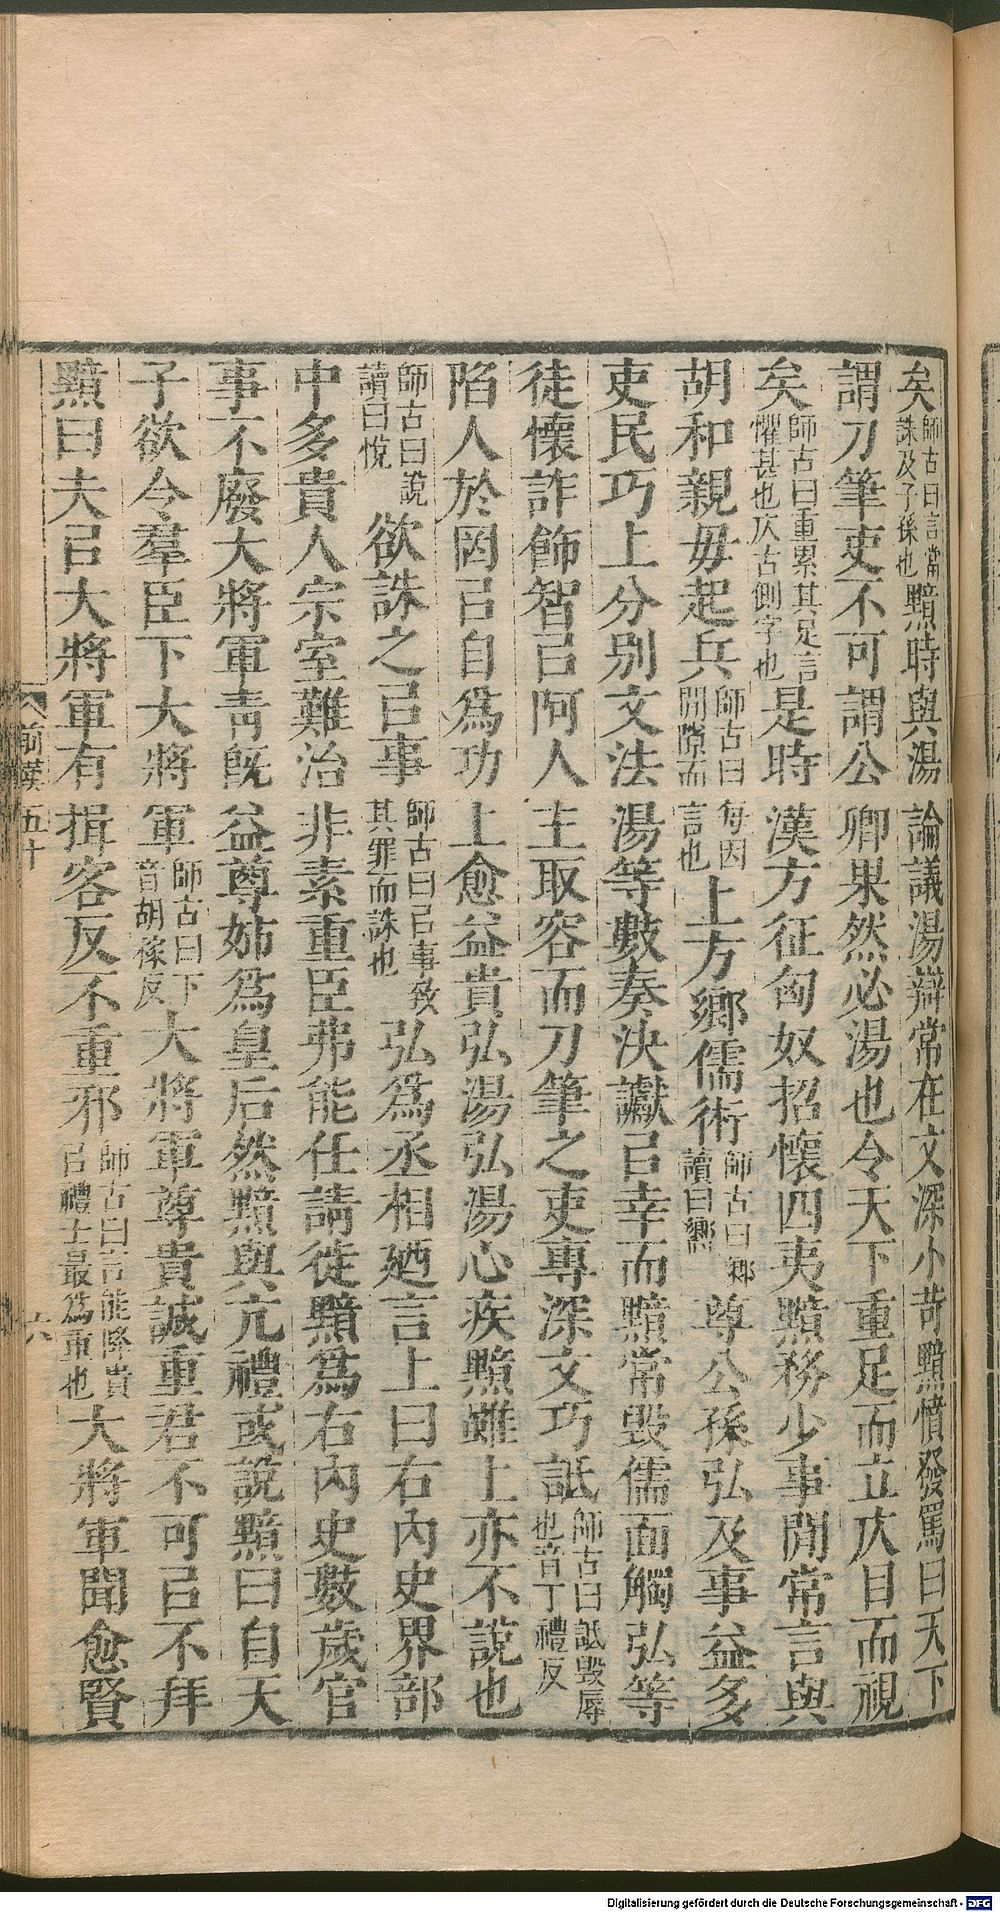 矣師古曰言當誅及子孫也黯時與湯論議湯辯常在文深小苛黯憤發罵曰天下
謂刀筆吏不可謂公卿果然必湯也令天下重足而立仄目而視
矣師古曰重累其足言懼甚也仄古側字也是時漢方征匈奴招懷四夷黯務少事閒常言與
胡和親毋起兵師古曰每因閒隙而言也上方鄉儒術師古曰鄉讀曰嚮尊公孫弘及事益多
吏民巧上分别文法湯等數奏決讞㠯幸而黯常毀儒面觸弘等
徒懷詐飾智㠯阿人主取容而刀筆之吏專深文巧詆師古曰詆毀辱也音丁禮反
陷人於罔㠯自爲功上愈益貴弘湯弘湯心疾黯雖上亦不說也
師古曰說讀曰悅欲誅之㠯事師古曰㠯事致其罪而誅也弘爲丞相廼言上曰右內史界部
中多貴人宗室難治非素重臣弗能任請徙黯爲右內史數歲官
事不廢大將軍青既益尊姊爲皇后然黯與亢禮或說黯曰自天
子欲令羣臣下大將軍師古曰下音胡稼反大將軍尊貴誠重君不可㠯不拜
黯曰夫㠯大將軍有揖客反不重邪師古曰言能降貴㠯禮士最爲重也大將軍聞愈賢
前漢五十
六
Digitalisierung gefördert durch die Deutsche Forschungsgemeinschaft - DFG